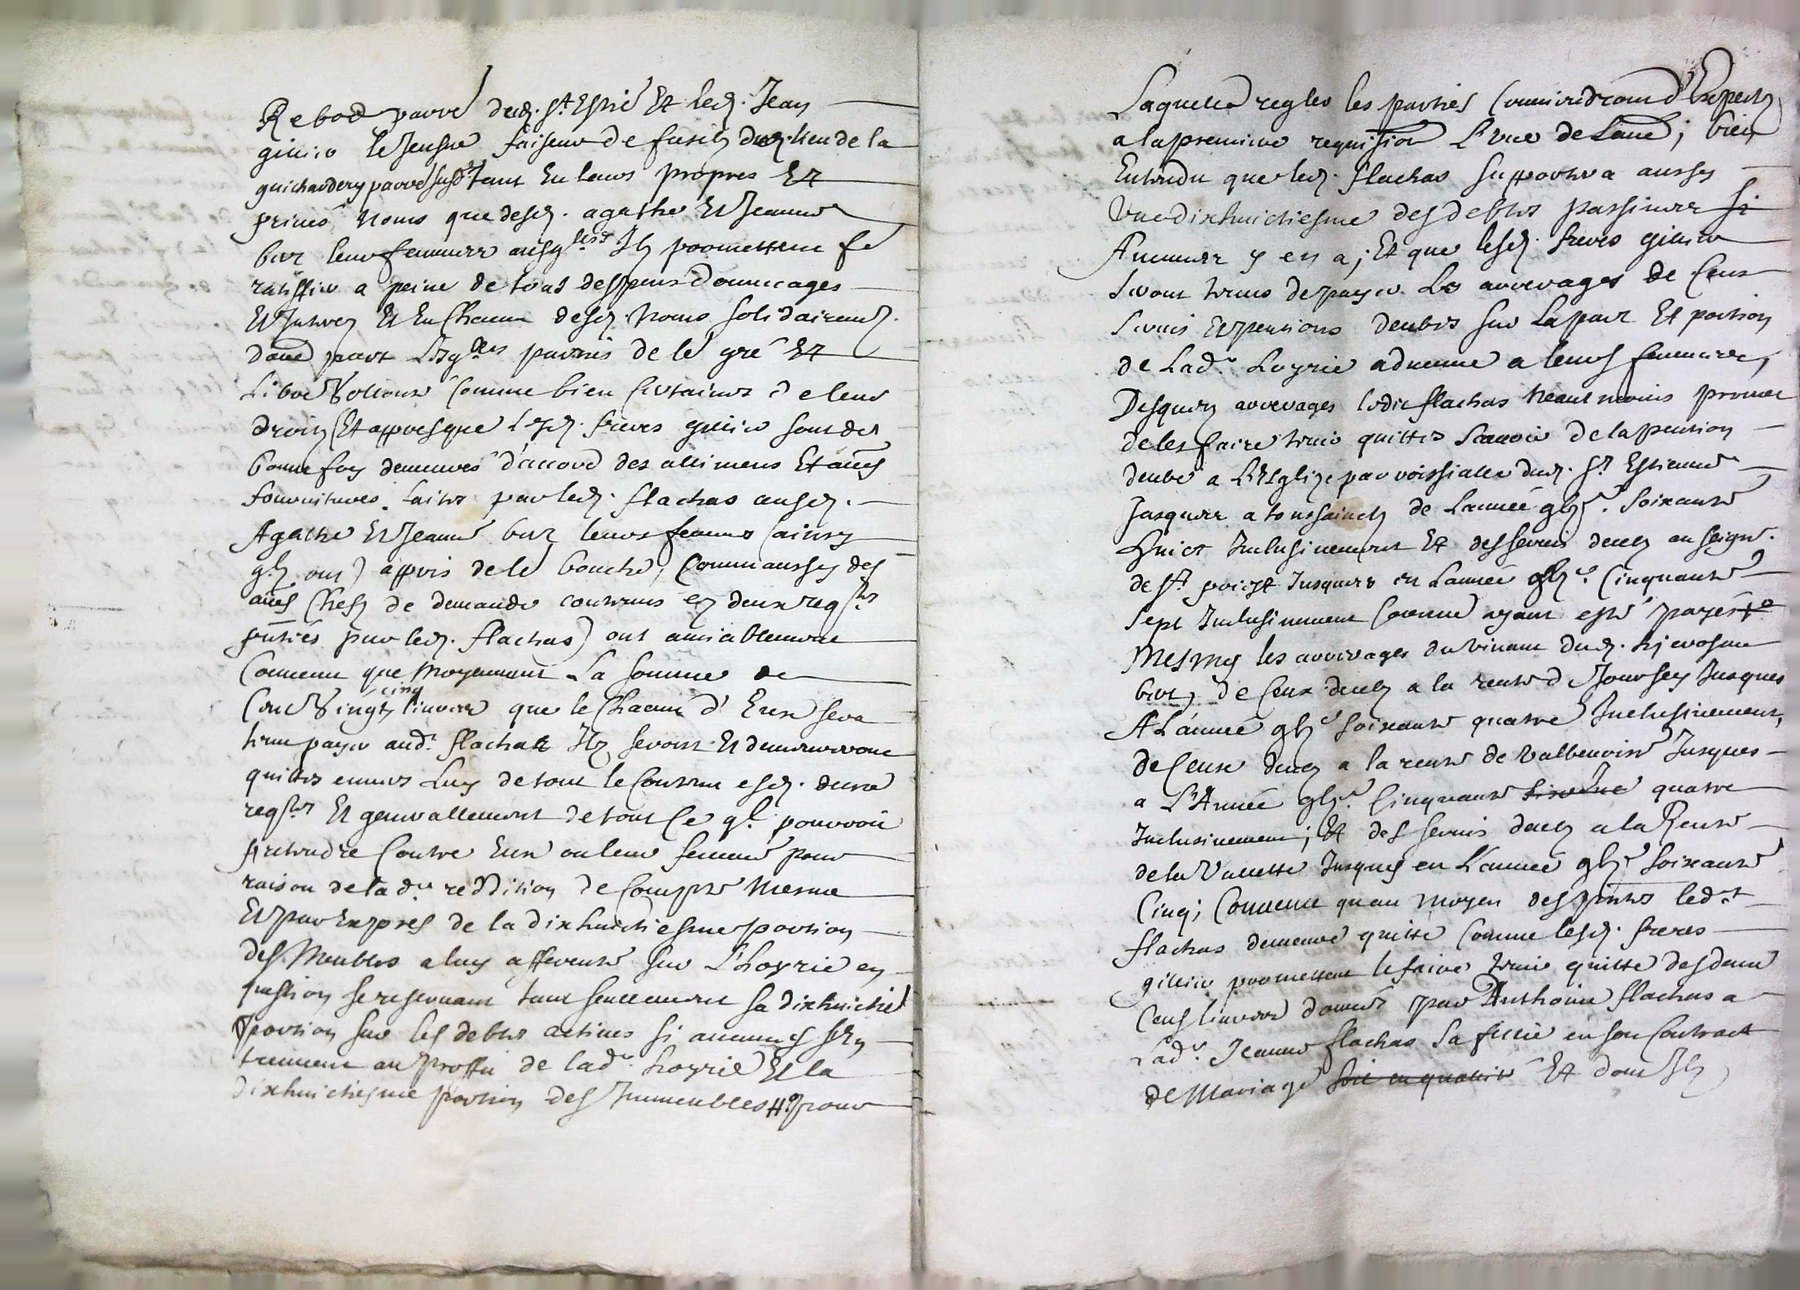 Rebod parre dud. St Estie Et led. Jean
gillier le jeusne faiseur de fusilz dud. lieu de la
parre susd. tant En leurs propres Et
privés noms que desd. agathe Et Jeanne
bur leur femmes ausq.lles Ilz promettent fe
ratiffier a peine de tous despens dommages
Et Intrez Et En Chacun desd. noms solidairemt.
d'aue part Lesq.lles parties de le gré Et
Libre Vollonté Comme bien Certaines de leur
droitz Et appres que lesd. freres gillier sont de
bonne foy demeurés d'accord des allimens Et aues
fournitures faites par led. flachas ausd.
Agathe Et Jeanne bur leurs femmes (ainsy
qlz ont) appris de le bouche, Comm'aussy des
aues Chefz de demande contenus en deux reqtes
pntées par led. flachas) ont amiablement
Convenu que moyennant La somme de
Cent Vingtz cinq livres que le Chacun d'Eux sera
tenu payer aud. flachas Ilz seront Et demeureront
quittes envers Luy de tout le Contenu esd. deux
reqtes Et generallement de tout Ce ql pourroit
pretendre Contre Eux ou leur femme pour
raison de la de reddition de Compte mesme
Et par Exprés de la dixhuictiesme portion
des Meubles a luy afferente sur L'hoyrie en
question se reservant tant seullement sa dixhuictie
portion sur les debtes actives si aucunes s'en
treuvent au proffit de lade hoyrie Et la
dixhuictiesme portion des Immeubles # pour
Laquelle regler les parties Conviendront d'Expertz
a la premiere requisition L'une de L'aue; bien
Entendu que led. flachas supportera aussy
Une dixhuictiesme des debtes passives si
Aucunes y en a; Et que lesd. freres gillier
seront tenus de payer Les arrerages de Cens
servis Et pensions deubes sur La part Et portion
de Lade hoyrie advenue a leurs femmes,
Desquelz arrerages ledit flachas neantmoins promet
de les faire tenir quittes scavoir de la pension
deube a L'Eglize parroissialle dud. St Estienne
Jusques a toussainctz de L'année gbz.e soixante
huict Inclusivement Et des servis deubz au seigr.
de St priest Jusques en L'année gbz.e Cinquante
sept Inclusivement Comme ayant esté payés
Mesmes les arrerages du vivant dud. hierosme
bur, de Ceux deubz a la rente d Jusques
A L'année gbz.e soixante quatre Inclusivement,
de Ceux deubz a la rente de Valbenoiste Jusques
a L'Année gbz.e Cinquante quatre
Inclusivement; Et des servis deubz a la Rente
de la Valette Jusques en L'année gbz.e soixante
Cinq; Convenu qu'au moyen des pntes ledt
flachas demeure quitte Comme lesd. freres
gillier promettent le faire tenir quitte des deux
Cens livres donnés par Anthoine flachas a
Lade Jeanne flachas sa fille en son Contract
de Mariage soit en quittes Et dont Ilz